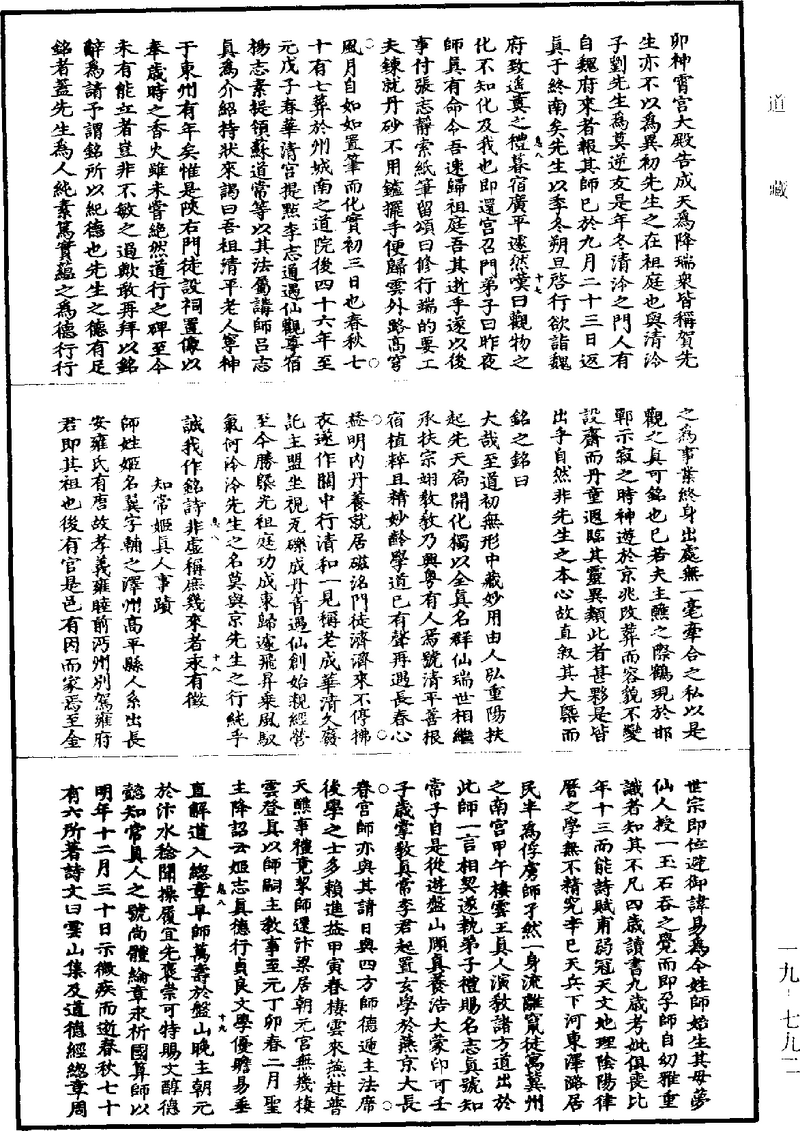 道藏
卯神霄宫大殿告成天為降瑞衆皆稱賀先
生亦不以為異初先生之在祖庭也與清泠
子劉先生為莫逆友是年冬清泠之門人有
自魏府來者報其師已於九月二十三日返
真于終南矣先生以季冬朔旦啓行欲詣魏
府致遥奠之禮暮宿廣平遽然嘆曰觀物之
化不知化及我也即還宫召門弟子曰昨夜
師真有命令吾速歸祖庭吾其逝乎遂以後
事付張志靜索紙筆留頌曰修行端的要工
夫鍊就丹砂不用鑪擺手便歸雲外路高穹
風月自如如置筆而化實初三日也春秋七
十有七葬於州城南之道院後四十六年至
元戊子春華清宫提點李志通遇仙觀尊宿
楊志素提領蘇道常等以其法屬講師呂志
真為介紹持狀來謁曰吾祖清平老人寧神
于東州有年矣惟是陝右門徒設祠置像以
奉歲時之香火雖未嘗絶然道行之碑至今
未有能立者豈非不敏之過歟敢再拜以銘
辭為請予謂銘所以紀德也先生之德有足
銘者蓋先生為人純素篤實藴之為德行行
之為事業終身出處無一毫牽合之私以是
觀之真可銘也已若夫主醮之際鶴現於邯
鄲示寂之時神遊於京兆改葬而容貌不變
設齋而丹童遐臨其靈異類此者甚夥是皆
出乎自然非先生之本心故直叙其大槩而
銘之銘曰
大哉至道初無形中藏妙用由人弘重陽扶
起先天扃開化獨以全真名群仙瑞世相繼
承扶宗翊教教乃興粤有人焉號清平善根
宿植粹且精妙齡學道已有聲再遇長春心
益明内丹養就居磁洺門徒濟濟來不停拂
衣遂作關中行清和一見稱老成華清久廢
託主盟坐視瓦礫成丹青遇仙創始親經營
至今勝槩光祖庭功成東歸遽飛昇乘風馭
氣何泠泠先生之名莫與京先生之行純乎
誠我作銘詩非虚稱庶幾來者永有徵
知常姬真人事蹟
師姓姬名翼字輔之澤州高平縣人系出長
安雍氏有唐故孝義雍睦前沔州別駕雍府
君即其祖也後有官是邑有因而家焉至金
世宗即位避御諱易為今姓師始生其母夢
仙人授一玉石吞之覺而即孕師自幼雅重
識者知其不凡四歲讀書九歲考妣俱喪比
年十三而能詩賦甫弱冠天文地理陰陽律
曆之學無不精究辛巳天兵下河東澤潞居
民半為俘虜師孑然一身流離竄徙寓冀州
之南宫甲午棲雲王真人演教諸方道出於
此師一言相契遂執弟子禮賜名志真號知
常子自是從遊盤山頤真養浩大蒙印可壬
子歲掌教真常李君起置玄學於燕京大長
春宫師亦與其請日與四方師德遞主法席
後學之士多賴進益甲寅春棲雲來燕赴普
天醮事禮竟挈師還汴梁居朝元宫無幾棲
雲登真以師嗣主教事至元丁卯春二月聖
主降詔云姬志真德行貞良文學優贍易垂
直解道入總章早師萬壽於盤山晚主朝元
於汴水稔聞操履宜先褒崇可特賜文醇德
懿知常真人之號尚體綸章永祈國算師以
明年十二月三十日示微疾而逝春秋七十
有六所著詩文曰雲山集及道德經總章周
卷八
十七
卷八
十八
卷八
十九
一九-七九二